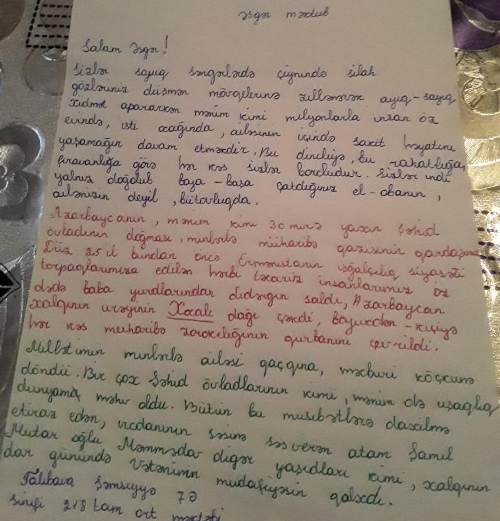 əsgər məktub
Salam Əsgər!
Sizlər sayıq səngərlərdə çiynində silah
gözləriniz düşmən mövqelərinə zillənərək ayıq-sayıq
xidmət apararkən mənim kimi milyonlarla insan öz
evində, isti ocağında, ailəsinin içində sakit həyatını
yaşamağın davam etməkdir. Bu dincliyə, bu rahatlığa,
firavanlığa görə hər kəs sizlərə borcludur. Sizlər indi
yalnız doğulub boya-başa çatdığınız el-obanın,
ailənizin deyil, bütövlüqda.
Azərbaycanın, mənim kimi 30 min yaxın şəhid
övladının doğması, minlərlə müharibə qazisinin qardaşısınız
Düz 25 il bundan öncə Ermənistanın işğalçılıq siyasəti
torpaqlarımıza edilən hərbi təcavüz insanlarımızı öz
dədə baba yurdlarından didərgin saldı, Azərbaycan
xalqının ürəyinə Xocalı dağı çəkdi, böyükdən-kiçiyə
hər kəs müharibə zorakılığının qurbanına çevrildi.
Millətimin minlərlə ailəsi qaçqına, məcburi köçkünə
döndü. Bir çox Şəhid övladlarının kimi, mənim də uşaqlıq
dünyamız məhv oldu. Bütün bu müsibətlərə daxilmə
etiraz edən, vicdanının səsinə səs verən atam Şamil
Muxtar oğlu Məmmədov digər yaşıdları kimi, xalqının
dar günündə Vətənimin müdafiyəsin qalxdı.
Talıbova Şəmsiyyə 7ə
sinifi 218 tam ort məktəbi